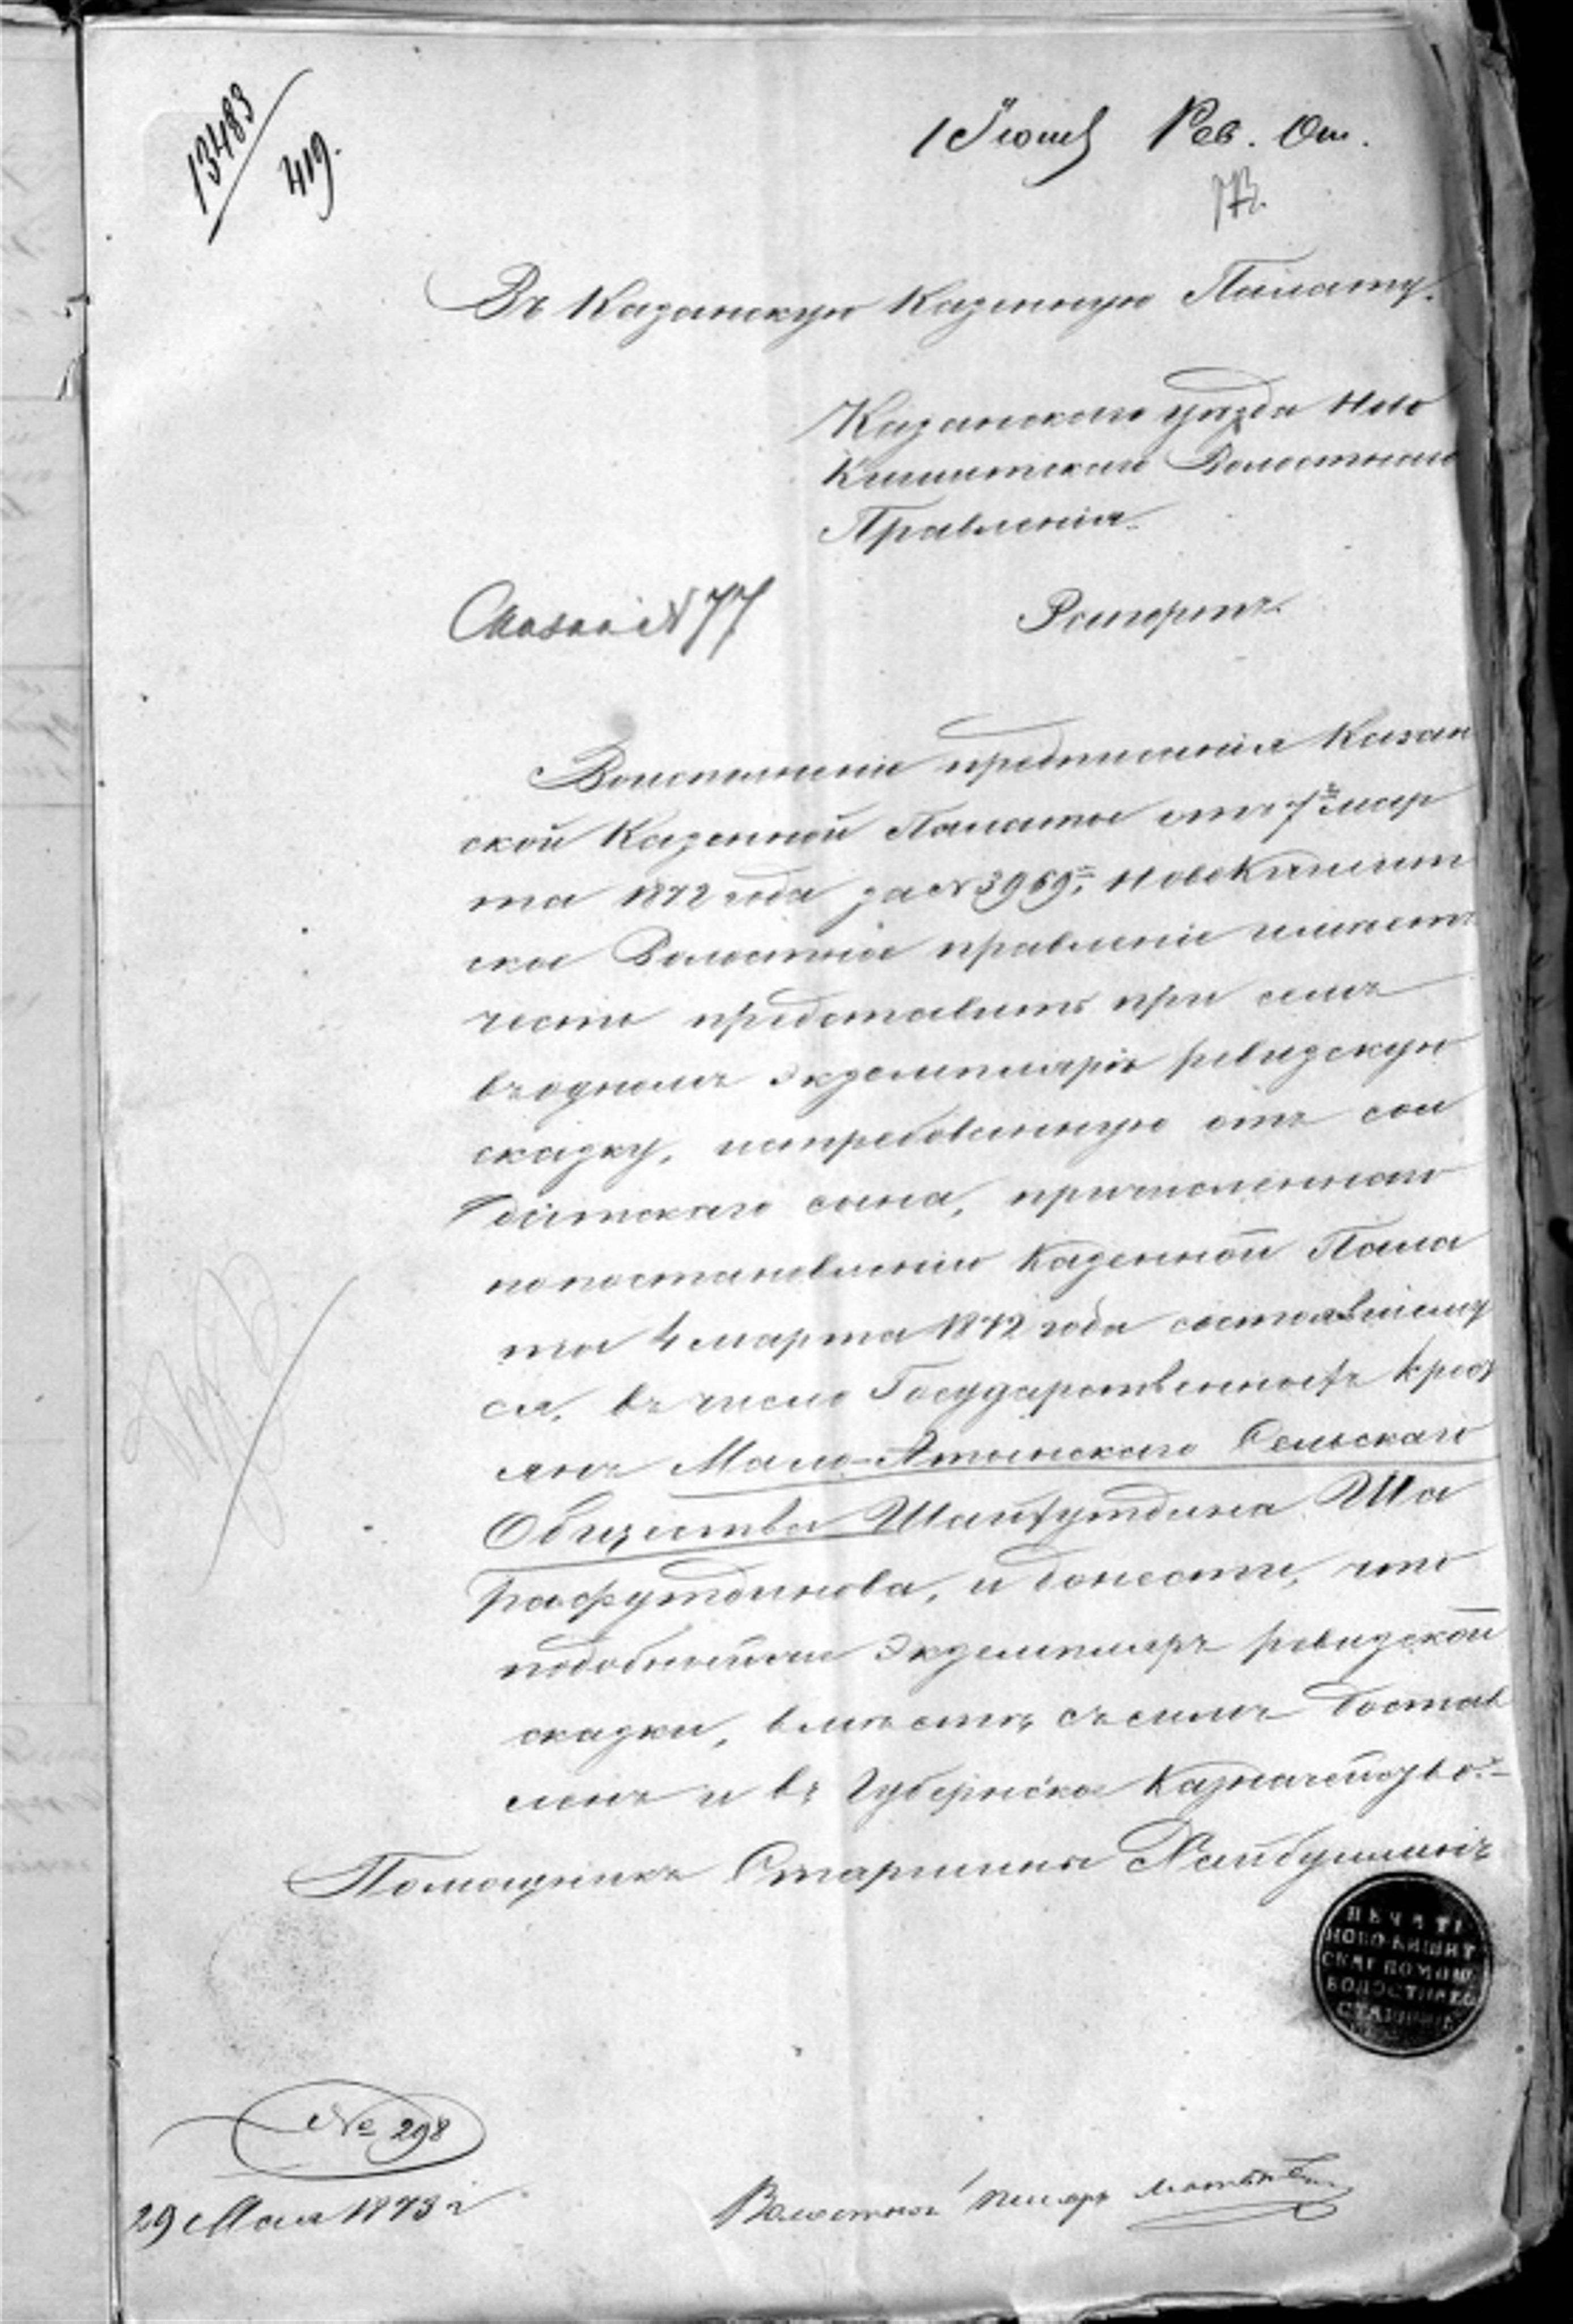 13483
419.
1 Іюня Рев. От.
Въ Казанскую Казенную Палату.
Казанскаго уѣзда Ново
Кишитскаго Волостнаго
Правленія.
Сказка № 77
Рапортъ.
Воисполненіе предписанія Казан
ской Казенной Палаты отъ 7го мар
та 1872 года за № 3969м, Новокишит
ское Волостное правленіе имѣетъ
честь представить при семъ
въ одномъ экземплярѣ ревизскую
сказку, истребованную отъ сол
датскаго сына, причисленнаго
по постановленію Казенной Пала
ты 4 марта 1872 года состоявшему
ся, въ число Государственныхъ крест
янъ Мало-Атынскаго Сельскаго
Общества Шайхутдина Ша
рафутдинова, и донести, что
подобный экземпляръ ревизской
сказки, вмѣстѣ съ симъ достав
ленъ и въ Губернское Казначейство.
Помощникъ Старшины Хайбуллинъ
ПЕЧАТЬ
НОВО-КИШИТ
СКАГ ПОМОЩ
ВОЛОСТНАГО
СТАРШИН
№ 298
29 Мая 1873 г
Волостной Писарь